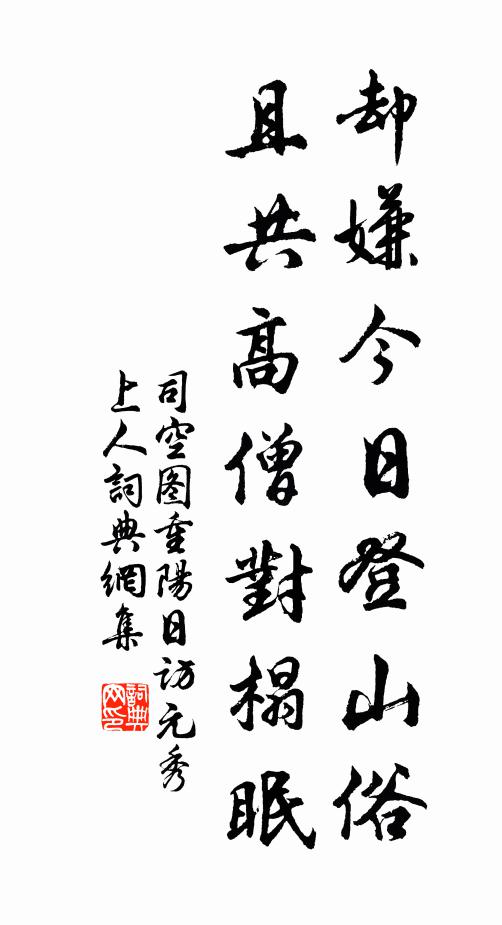 却嫌今日登山俗
且共高僧對榻眠
司空图重陽日访元秀
上人詞典網集
詞典
网印